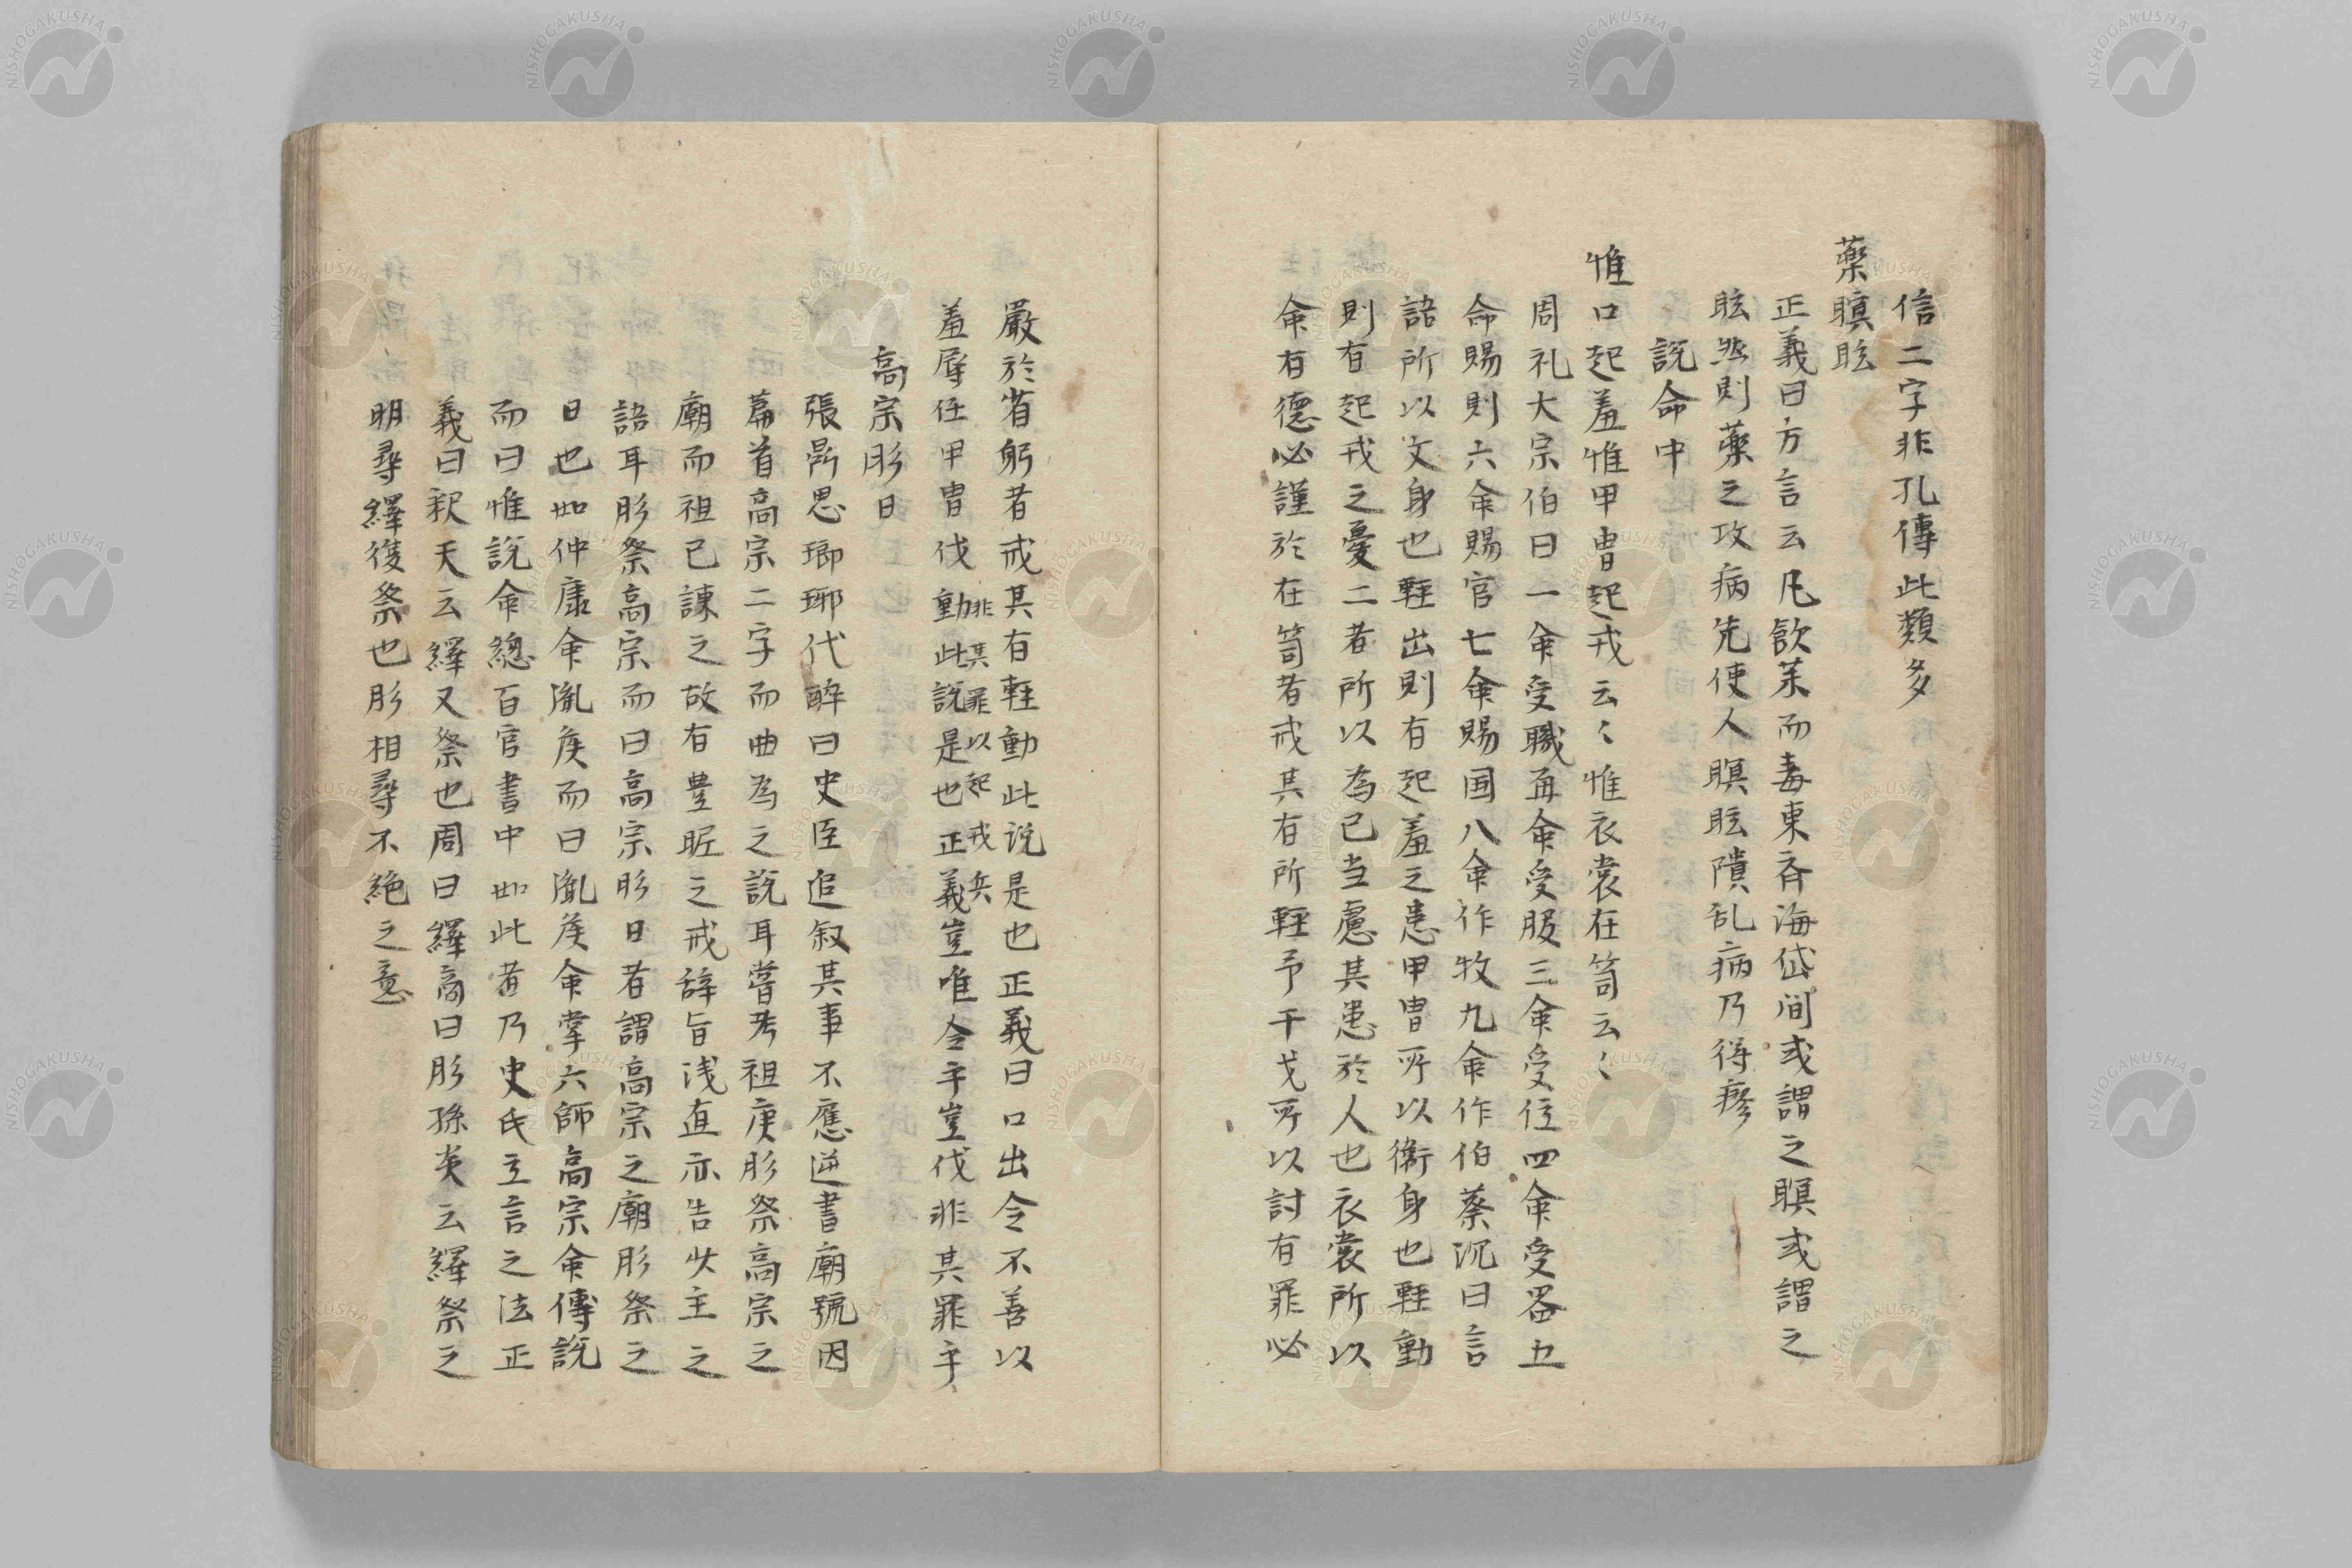 信二字非孔傳此類多
藥瞑眩
正義曰方言云凡飲茱而毒東斉海岱间或謂之瞑或謂之
眩然則藥之攻病先使人瞑眩隤乱病乃得瘳
說命中
惟口起羞惟甲冑起戎云〻惟衣裳在笥云〻
周礼大宗伯曰一命受職再命受服三命受位四命受器五
命賜則六命賜官七命賜国八命作牧九命作伯蔡沉曰言
語所以文身也輕出則有起羞之患甲冑所以衞身也輕動
則有起戎之憂二者所以為己当慮其患於人也衣裳所以
命有德必謹於在笥者戒其有所輕予干戈所以討有罪必
嚴於省躬者戒其有輕動此说是也正義曰口出令不善以
羞辱任甲冑伐動此說是也正義豈唯令乎豈伐非其罪乎
非其罪以起戎兵
高宗肜日
張鼎思瑯琊代醉曰史臣追叙其事不應迸書廟號因
篇首高宗二字而曲為之說耳嘗考祖庚肜祭高宗之
廟而祖己諫之故有豊昵之戒辞旨浅直亦告少主之
語耳肜祭高宗而曰高宗肜日者謂高宗之廟肜祭之
日也如仲康命胤侯而曰胤侯命掌六師高宗命傅説
而曰惟說命總百官書中如此者乃史氏立言之法正
義曰釈天云繹又祭也周曰繹商曰肜孫炎云繹祭之
明尋繹復祭也肜相尋不絶之意